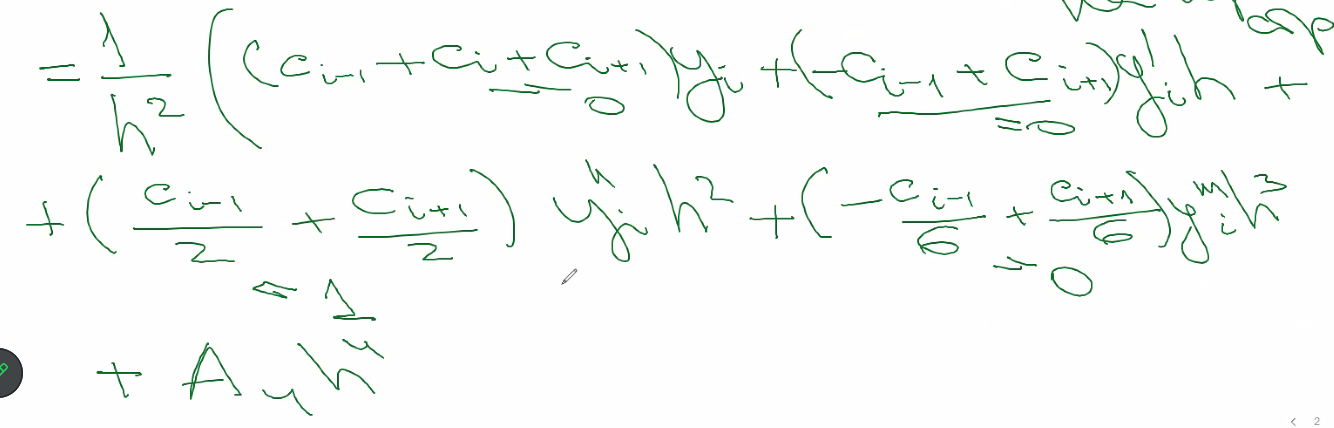 = 1/h² ((c_{i-1} + c_i + c_{i+1}) y_i + (-c_{i-1} + c_{i+1}) y'_i h +
= 0
= 0
+ (c_{i-1}/2 + c_{i+1}/2) y''_i h² + (-c_{i-1}/6 + c_{i+1}/6) y'''_i h³
= 1
= 0
+ A_4 h⁴
< 2